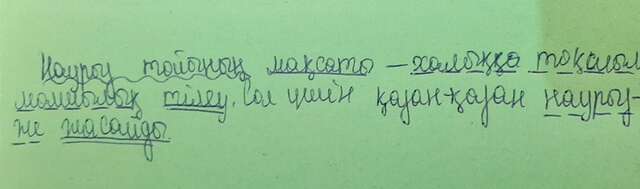 Наурыз тойының мақсаты – халыққа
молшылық тілеу. Сол үшін қазан-қазан наурыз-
же жасайды.